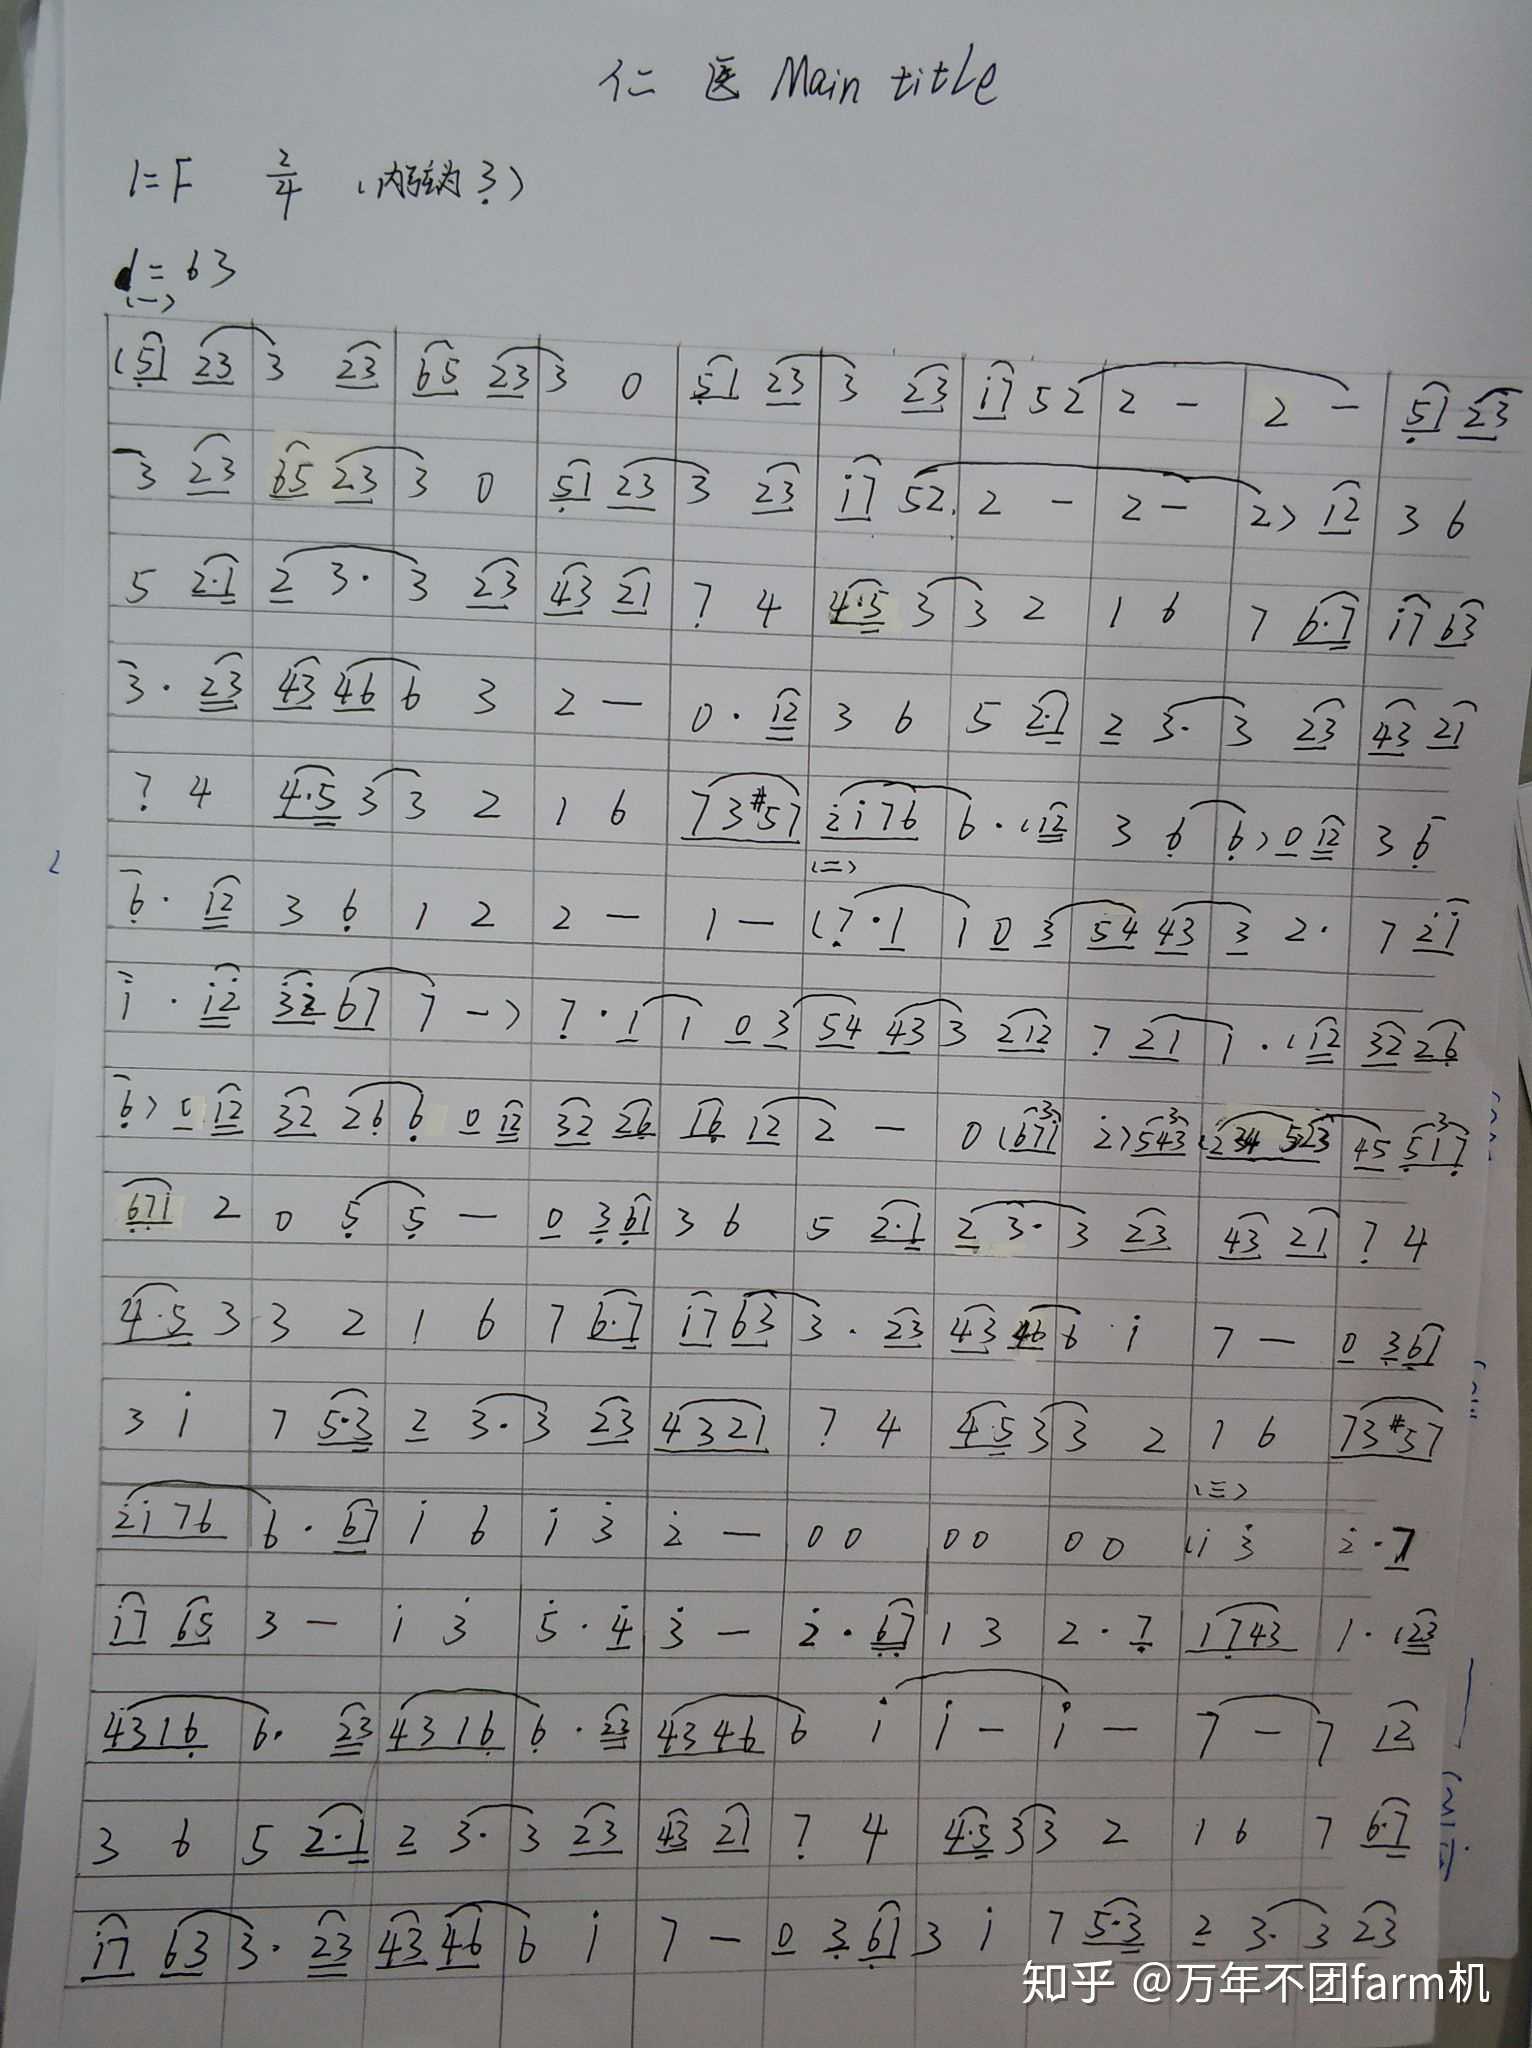 仁 医 Main title
1=F 2/4 (内弦为 3̣)
♩=63
(一)
(5̣1 23 | 3 23 | 65 23 | 3 0 | 5̣1 23 | 3 23 | i7 52 | 2 - | 2 - | 5̣1 23
3 23 | 65 23 | 3 0 | 5̣1 23 | 3 23 | i7 52 | 2 - | 2 - | 2) i2 | 3 6
5 2·1 | 2 3· | 3 23 | 43 21 | 7̣ 4 | 4·5 3 | 3 2 | 1 6 | 7 6·7 | i7 63
3· 23 | 43 46 | 6 3 | 2 - | 0· i2 | 3 6 | 5 2·1 | 2 3· | 3 23 | 43 21
7̣ 4 | 4·5 3 | 3 2 | 1 6 | 73#57 | 2̇i76 | 6· (i2 | 3 6̣ | 6̣) 0 i2 | 3 6̣
(二)
6̣· i2 | 3 6̣ | 1 2 | 2 - | 1 - | (7̣·1 | 1 0 3 | 54 43 | 3 2· | 7 2̇i
i· i2̇ | 3̇2̇ 67 | 7 -) | 7̣·1 | 1 0 3 | 54 43 | 3 212 | 7̣ 21 | 1· (i2 | 32 26̣
6̣) 0 i2 | 32 26̣ | 6̣ 0 i2 | 32 26̣ | 16̣ 12 | 2 - | 0 (671 | 2̇) 543 | 45 5̣17̣
6̣7̣1 2 | 0 5̣ | 5̣ - | 0 3̣6̣1 | 3 6 | 5 2·1 | 2 3· | 3 23 | 43 21 | 7̣ 4
4·5 3 | 3 2 | 1 6 | 7 6·7 | i7 63 | 3· 23 | 43 46 | 6 i | 7 - | 0 3̣6̣1
3 i | 7 5·3 | 2 3· | 3 23 | 4321 | 7̣ 4 | 4·5 3 | 3 2 | 1 6 | 73#57
(三)
2̇i76 | 6· 67 | i 6 | i 3̇ | 2̇ - | 0 0 | 0 0 | 0 0 | (i 3̇ | 2̇·7
i7 65 | 3 - | i 3̇ | 5̇·4̇ | 3̇ - | 2̇· 6̣7̣ | 1 3 | 2·7̣ | 17̣43 | 1· (23
4316̣ | 6̣· 23 | 4316̣ | 6̣· 23 | 4346 | 6 i | i - | i - | 7 - | 7 12
3 6 | 5 2·1 | 2 3· | 3 23 | 43 21 | 7̣ 4 | 4·5 3 | 3 2 | 1 6 | 7 6·7
i7 63 | 3· 23 | 43 46 | 6 i | 7 - | 0 3̣6̣1 | 3 i | 7 5·3 | 2 3· | 3 23
知乎 @万年不团farm机